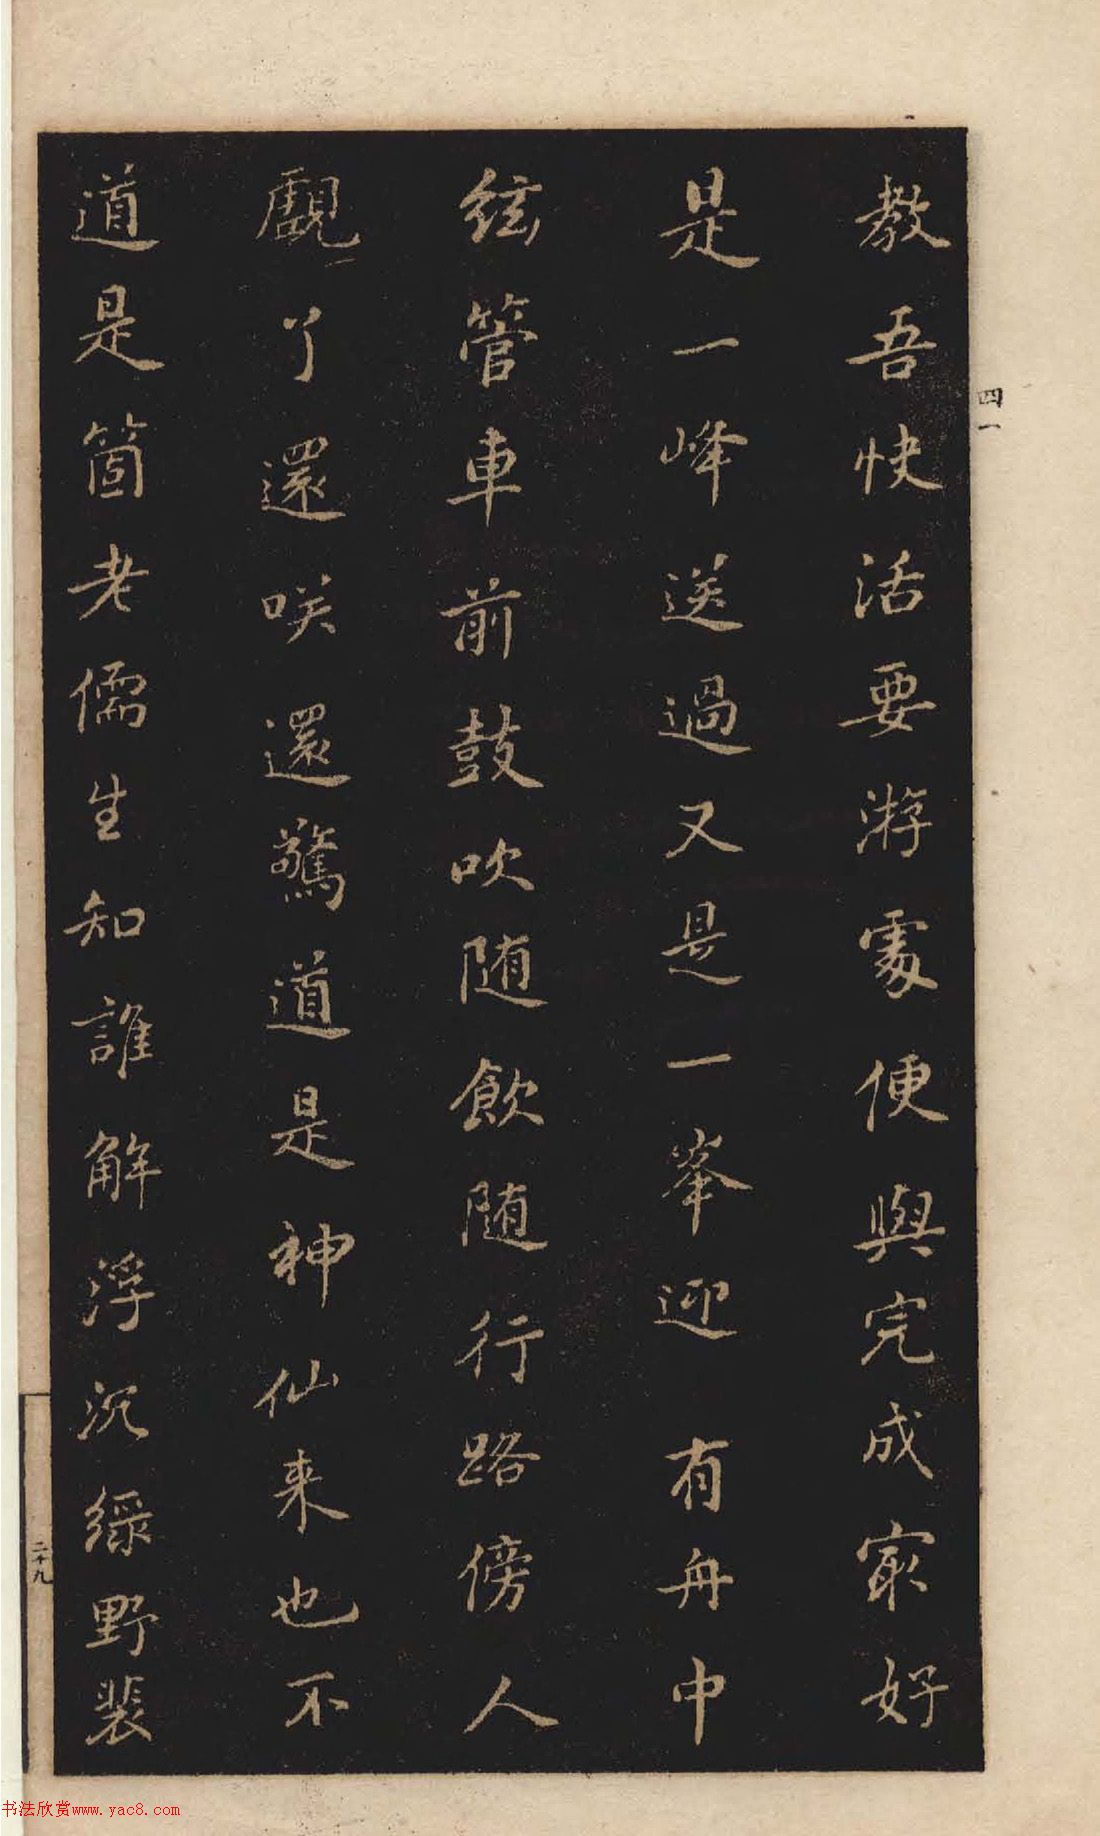 教吾快活要游處便與完成家好
是一峰送過又是一峯迎 有舟中
絃管車前鼓吹随飲随行路傍人
觀了還咲還驚道是神仙来也不
道是箇老儒生知誰解浮沉緑野裴
四一
二十九
书法欣赏www.yac8.com